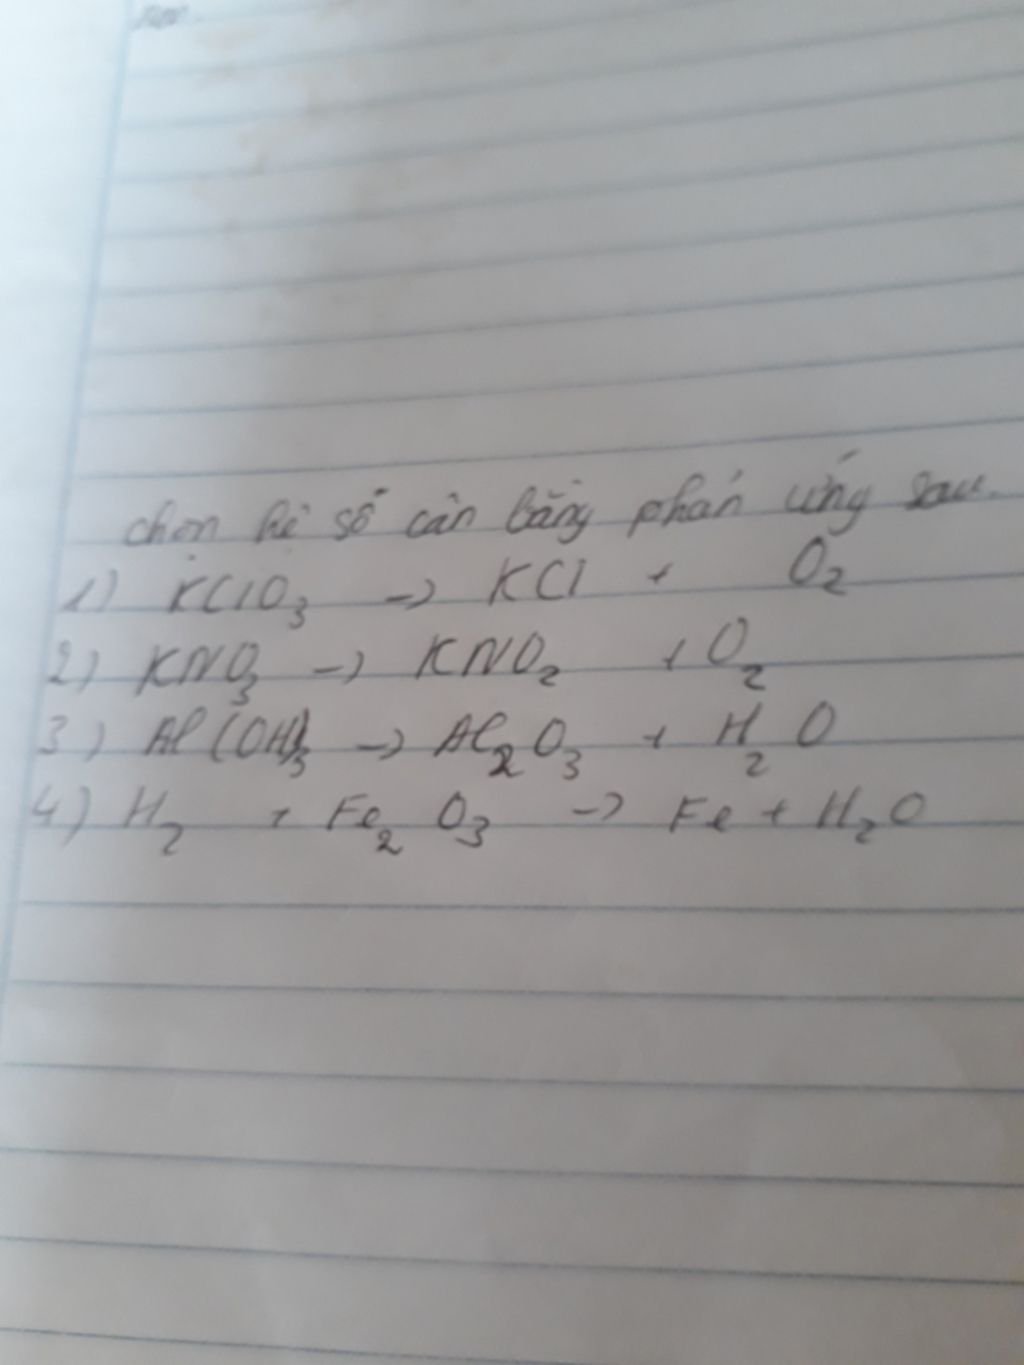 chọn hệ số cân bằng phản ứng sau.
1) KClO3 -> KCl + O2
2) KNO3 -> KNO2 + O2
3) Al(OH)3 -> Al2O3 + H2O
4) H2 + Fe2O3 -> Fe + H2O